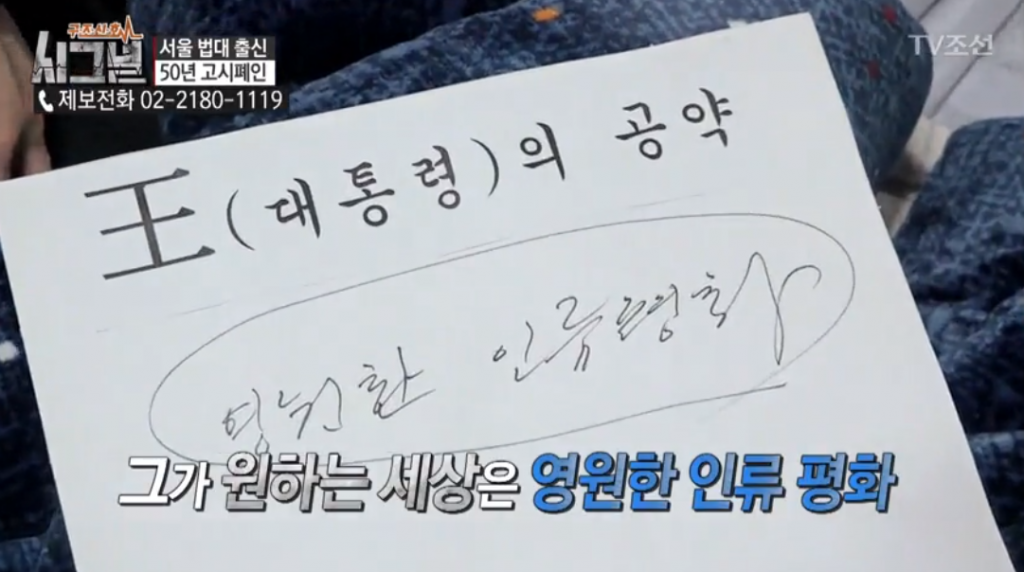 구조신호
시그널
서울 법대 출신
50년 고시폐인
제보전화 02-2180-1119
TV조선
王(대통령)의 공약
영원한 인류평화
그가 원하는 세상은 영원한 인류 평화